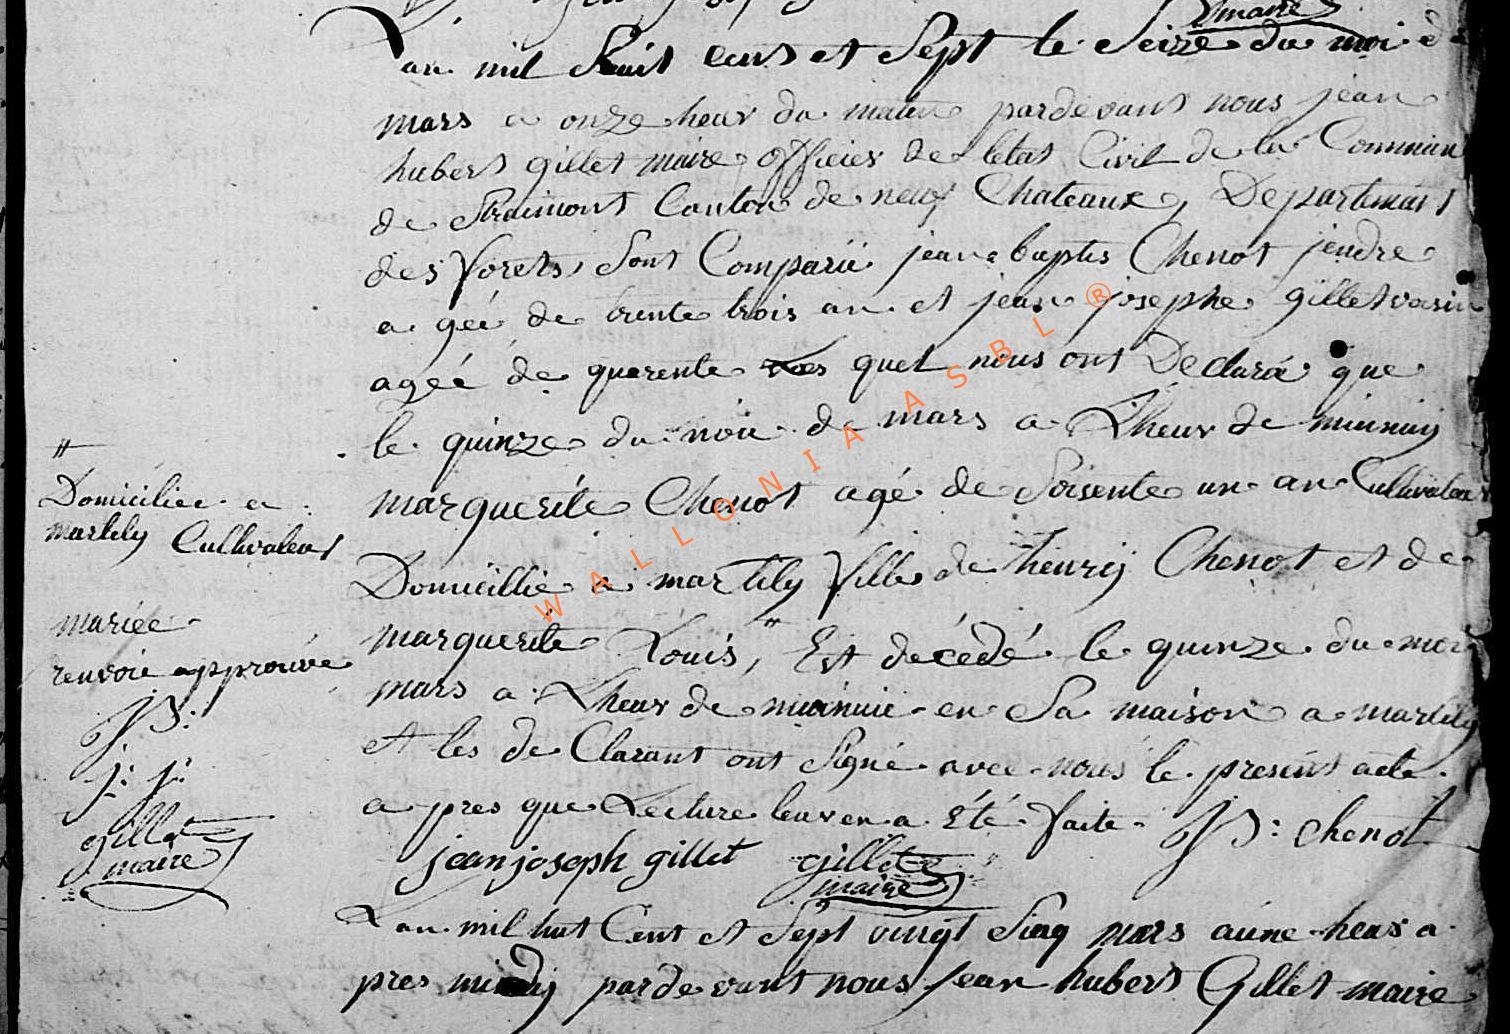 maire
Lan mil huit cens et Sept le Seize du moi de
mars a onze heur du matin pardevant nous jean
hubert gillet maire officier de letat Civil de la Commun
de Straimont Canton de neuf Chateaux, Departemant
des forets, Sont Comparû jean baptis Chenot jendre
a geé de trente trois an et jean josephe gillet voisin
ageé de quarente les quel nous ont Declaré que
le quinze du moi de mars a Lheur de minuiy
marguerite Chenot agé de Soisente un an Cultivateur
Domicillié a martily fille de henry Chenot et de
marguerite Louis, " Est decédé le quinze du moi
mars a Lheur de minuie en Sa maison a martily
et les de Clarant ont Signé avec nous le present acte
a pres que Lecture leur en a Eté faite JB: chenot
jean joseph gillet gillet
maire
Lan mil huit Cent et Sept vingt Sinq mars a une heur a
pres midy pardevant nous jean hubert Gillet maire
"
Domiciliee a
martily Cultivateur
mariée
renvoie approuvé
JB:
j: j:
gillet
maire
WALLONIA ASBL ®